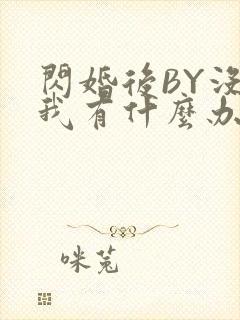 閃婚後BY沒
我有什麼办
咪兎